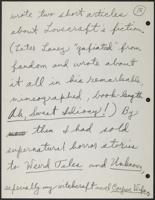 wrote two short articles
about Lovecraft's fiction.
(Later Laney "gafiated" from
fandom and wrote about
it all in his remarkable
mimeographed, book-length
Ah, Sweet Idiocy!) By
then I had sold
supernatural horror stories
to Weird Tales and Unknown,
especially my witchcraft novel Conjure Wife,